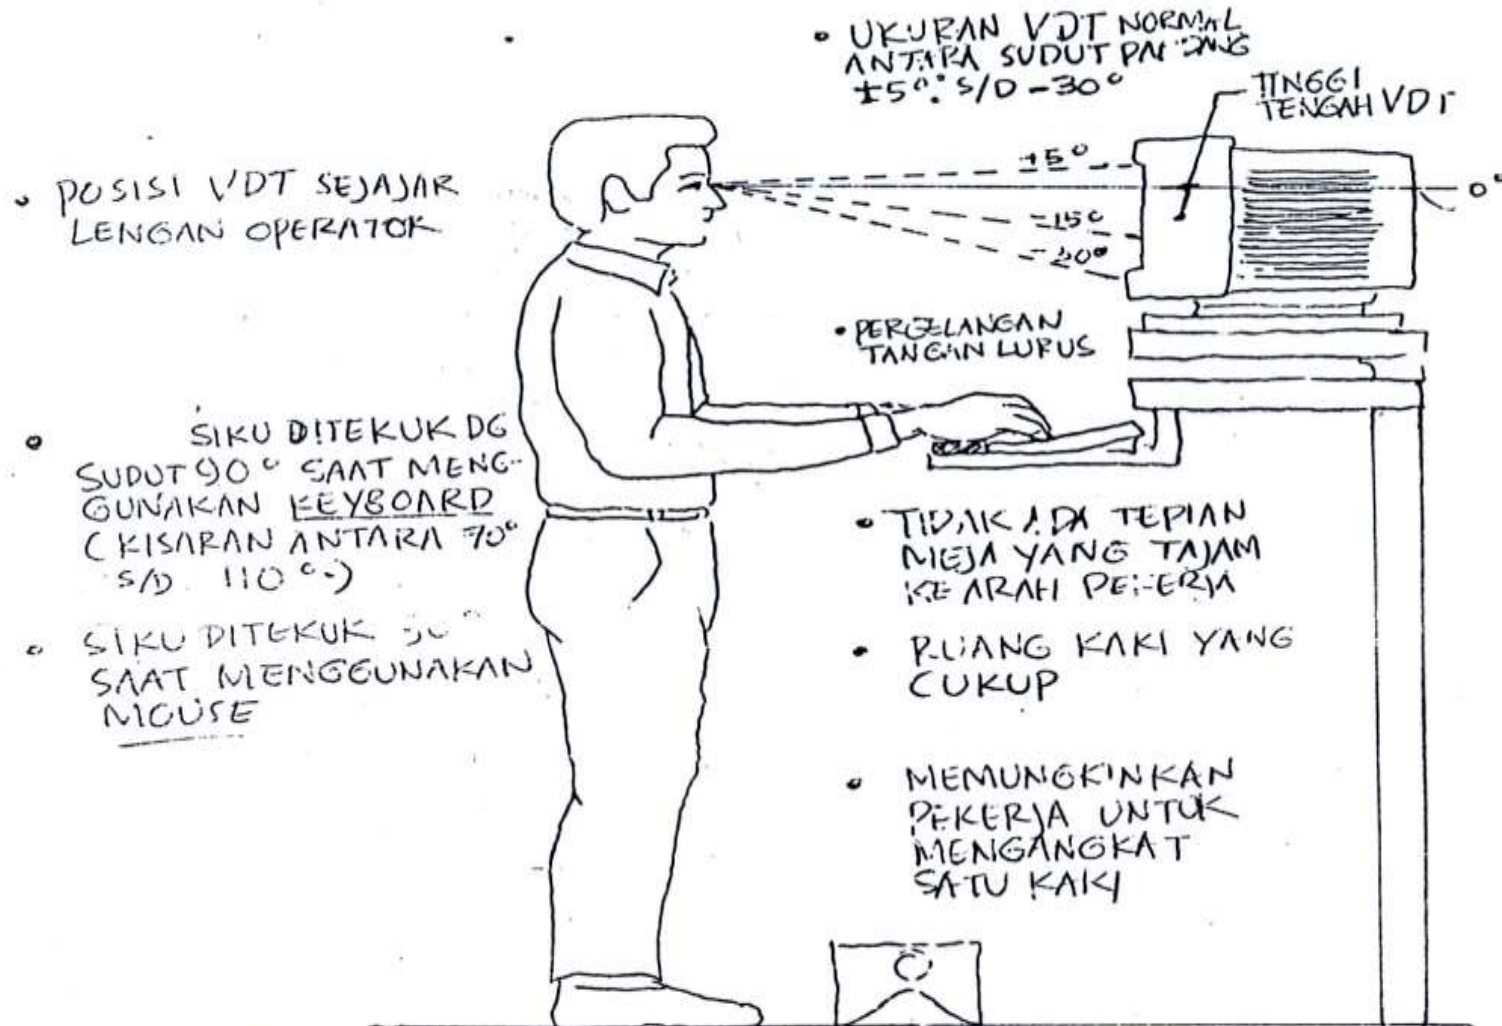 • UKURAN VDT NORMAL
ANTARA SUDUT PANDANG
±5° S/D -30°
TINGGI
TENGAH VDT
+5°
0°
-15°
• POSISI VDT SEJAJAR
LENGAN OPERATOR
• PERGELANGAN
TANGAN LURUS
• SIKU DITEKUK DG
SUDUT 90° SAAT MENG-
GUNAKAN KEYBOARD
(KISARAN ANTARA 70°
S/D 110°)
• SIKU DITEKUK
SAAT MENGGUNAKAN
MOUSE
• TIDAK ADA TEPIAN
MEJA YANG TAJAM
KE ARAH PEKERJA
• RUANG KAKI YANG
CUKUP
• MEMUNGKINKAN
PEKERJA UNTUK
MENGANGKAT
SATU KAKI